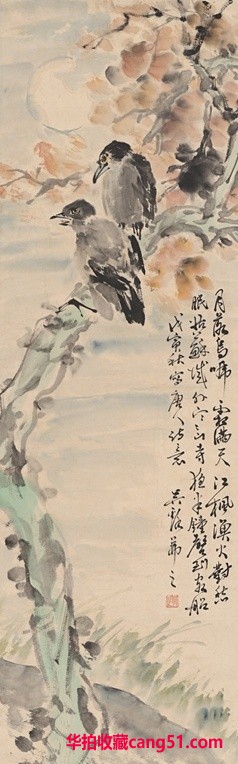 月落烏啼霜滿天江楓漁火對愁
眠姑蘇城外寒山寺夜半鐘聲到客船
戊寅秋寫唐人詩意 吳谿茀之
华拍收藏cang51.com